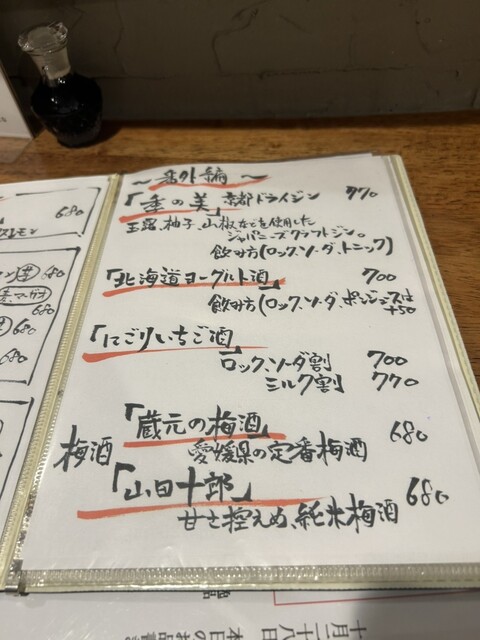 〜番外編〜
「季の美」京都ドライジン 770
玉露、柚子、山椒などを使用した
ジャパニーズクラフトジン。
飲み方(ロック、ソーダ、トニック)
「北海道ヨーグルト酒」 700
飲み方(ロック、ソーダ、ポンジュースは
+50
「にごりいちご酒」
ロック、ソーダ割 700
ミルク割 770
梅酒
「蔵元の梅酒」 680
愛媛県の定番梅酒
「山田十郎」 680
甘さ控えめ、純米梅酒
680
680
680
680
十月二十八日 本日のお品書き